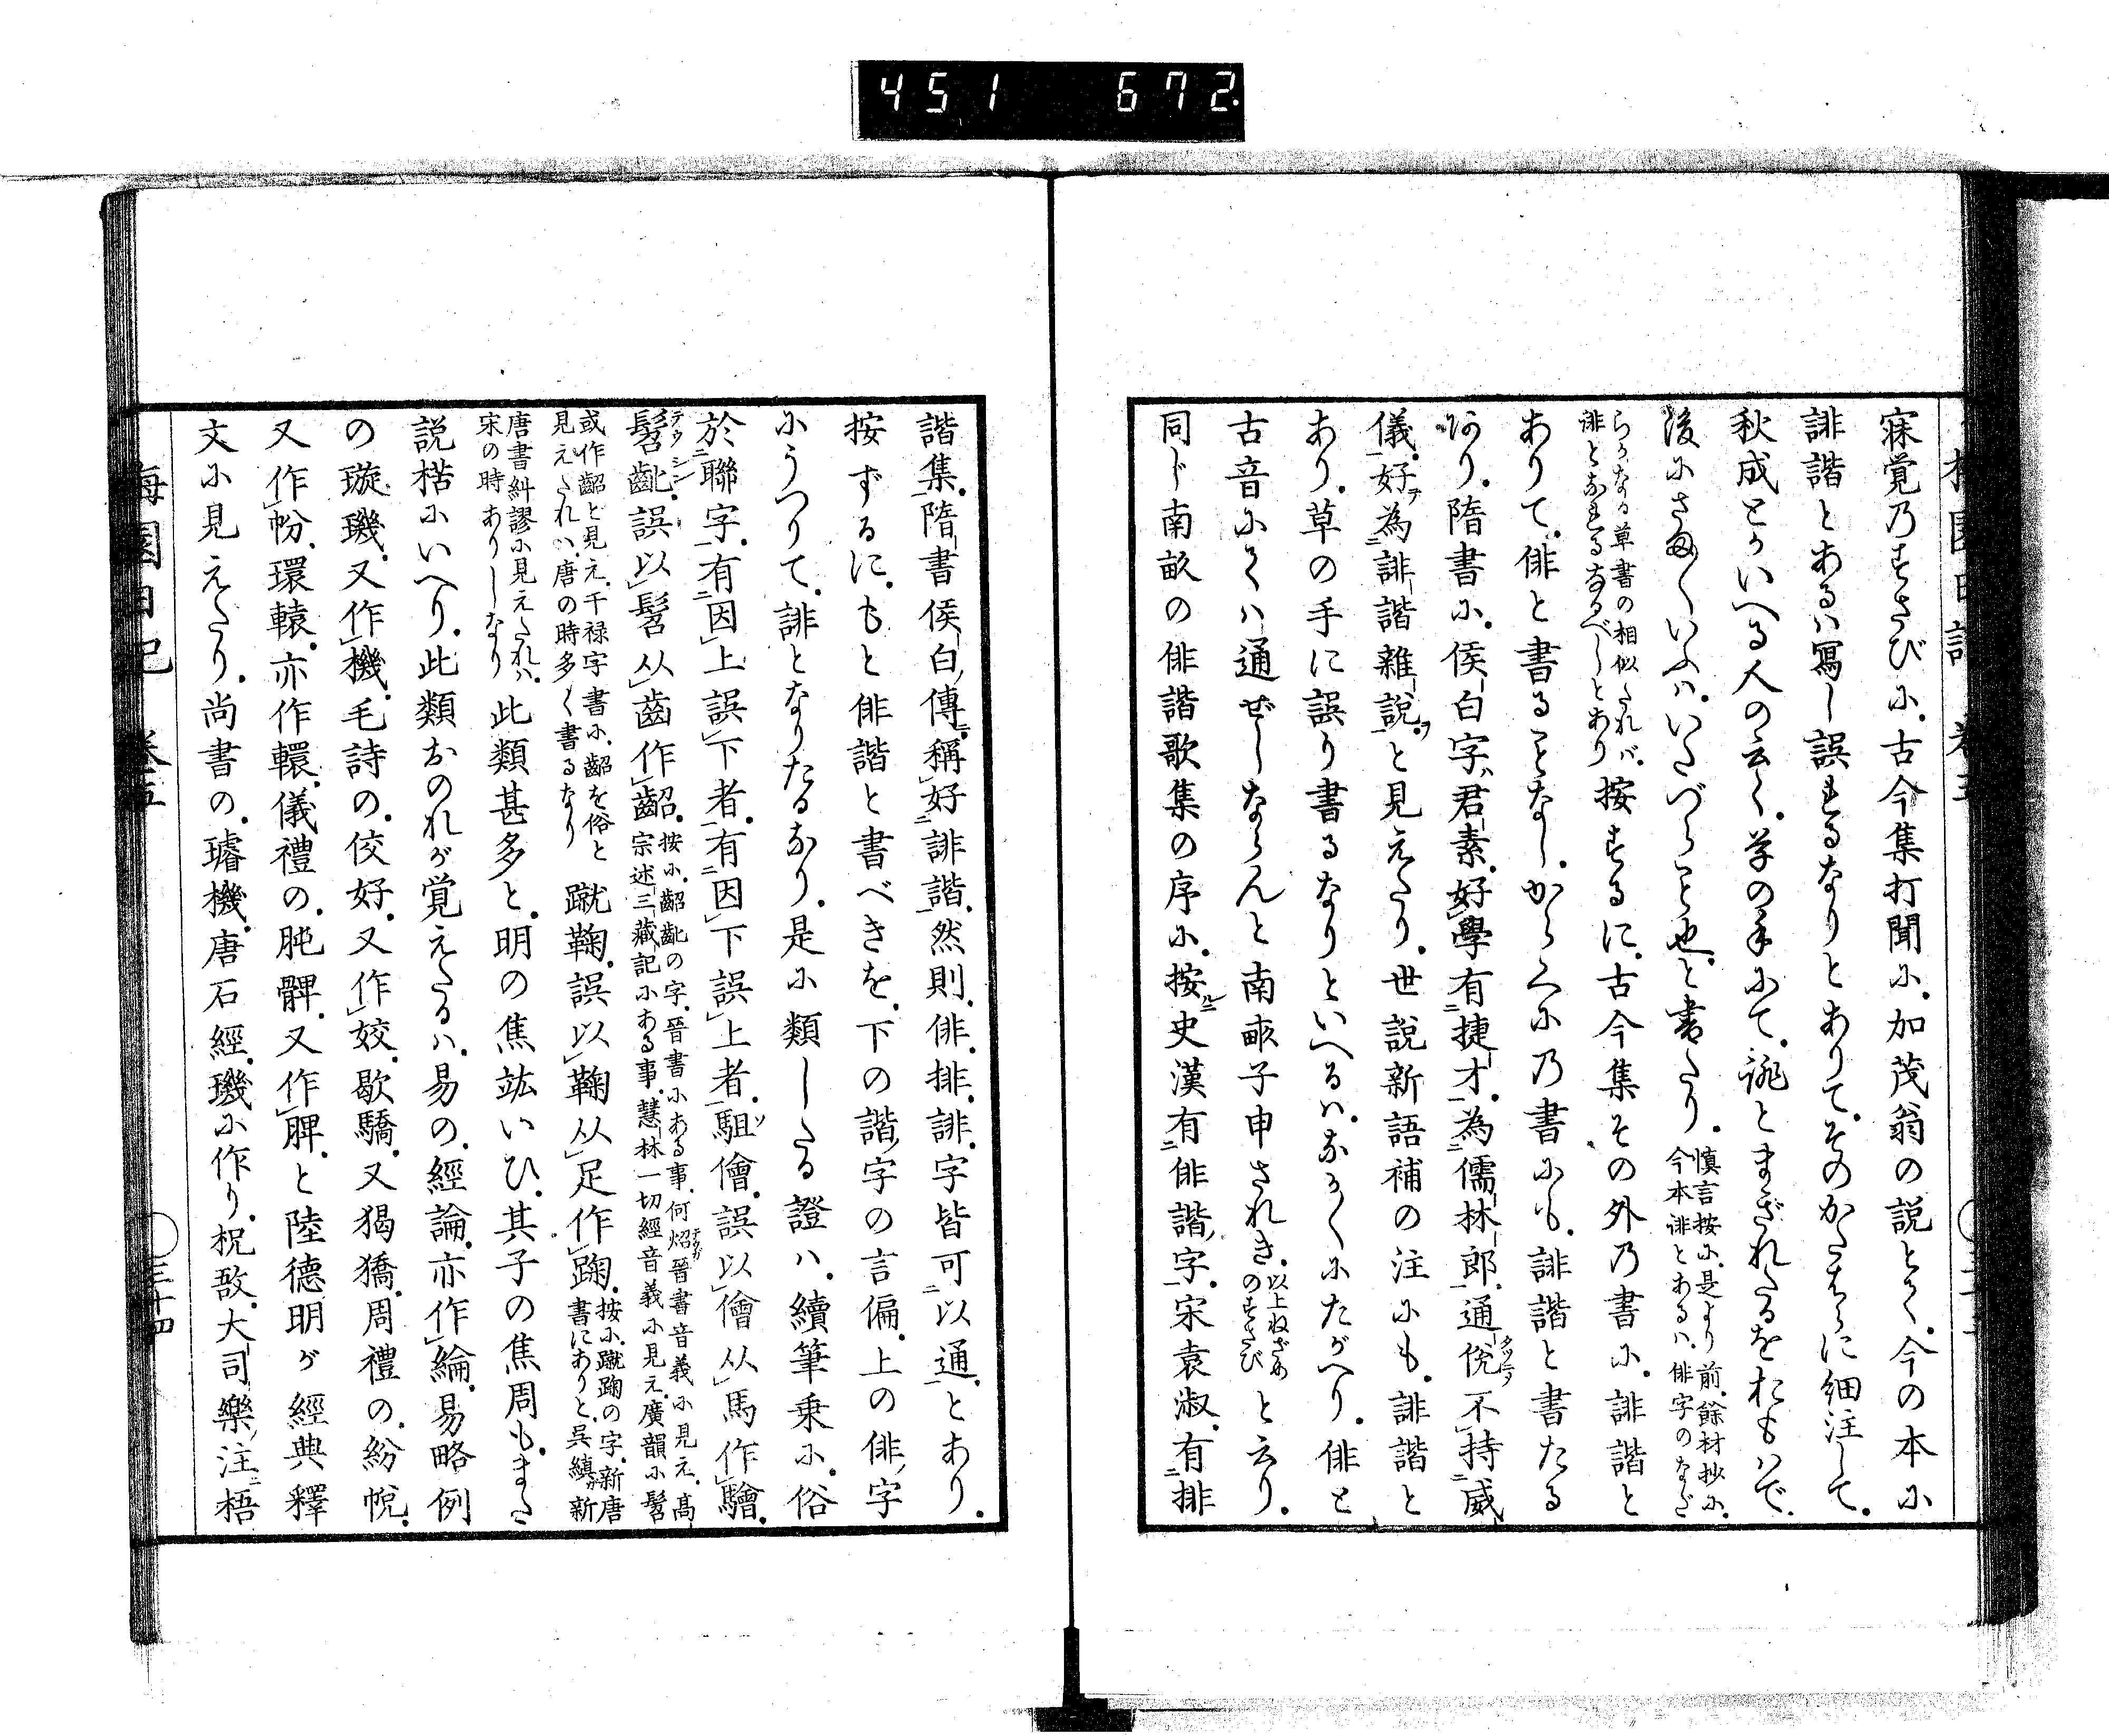 451 672
梅園日記 卷五
寐覚乃すさびに。古今集打聞に。加茂翁の説とて。今の本に
誹諧とあるハ寫し誤れるなりとありて。そのかたはらに細注して。
秋成とかいへる人の云く。草の手にて。誂とまぎれたるをおもハで。
後にさまくいふハ。いたづらこと也。と書たり。
慎言按に。是より前。餘材抄に。
今本誹とあるハ。俳字のなだ
らかなる草書の相似たれバ。
誹となれるなるべしとあり
按ずるに。古今集その外乃書に。誹諧と
ありて。俳と書ることなし。からくに乃書にも。誹諧と書たる
あり。隋書に。侯白字ハ君素。好學有捷才。為儒林郎。通侻不持威
儀。好為誹諧雜說。と見えたり。世説新語補の注にも。誹諧と
あり。草の手に誤り書るなりといへるハ。なかくにたがへり。俳と
古音にてハ通ぜしならんと南畝子申されき。
以上ねざめ
のすさび
と云り。
同じ南畝の俳諧歌集の序に。按史漢有俳諧字。宋袁淑。有排
諧集。隋書侯白傳。稱好誹諧。然則。俳。排。誹。字皆可以通。とあり。
按ずるに。もと俳諧と書べきを。下の諧字の言偏。上の俳字
にうつりて。誹となりたるなり。是に類したる證ハ。續筆乗に。俗
於聯字。有因上誤下者。有因下誤上者。駔儈。誤以儈从馬作驓。
髫齔。誤以髫从齒作齠。
按に。齠齔の字。晉書にある事。何炤晉書音義に見え。高
宗述三藏記にある事。慧林一切經音義に見え。廣韻に髫
或作齠と見え。干禄字書に。齠を俗と
見えたれハ。唐の時多く書るなり
蹴鞠。誤以鞠从足作踘。
按に。蹴踘の字。新唐
書にありと。呉縝が新
唐書糾謬に見えたれハ。
宋の時ありしなり
此類甚多と。明の焦竑いひ。其子の焦周も。また
説楛にいへり。此類おのれが覚えたるハ。易の。經論。亦作綸。易略例
の璇璣。又作機。毛詩の。佼好。又作姣。歇驕。又猲獢。周禮の。紛帨。
又作帉。環轅。亦作轘。儀禮の。肫髀。又作脾。と陸德明が經典釋
文に見えたり。尚書の。璿機。唐石經。璣に作り。柷敔。大司樂注梧
梅園日記 卷五 三十四